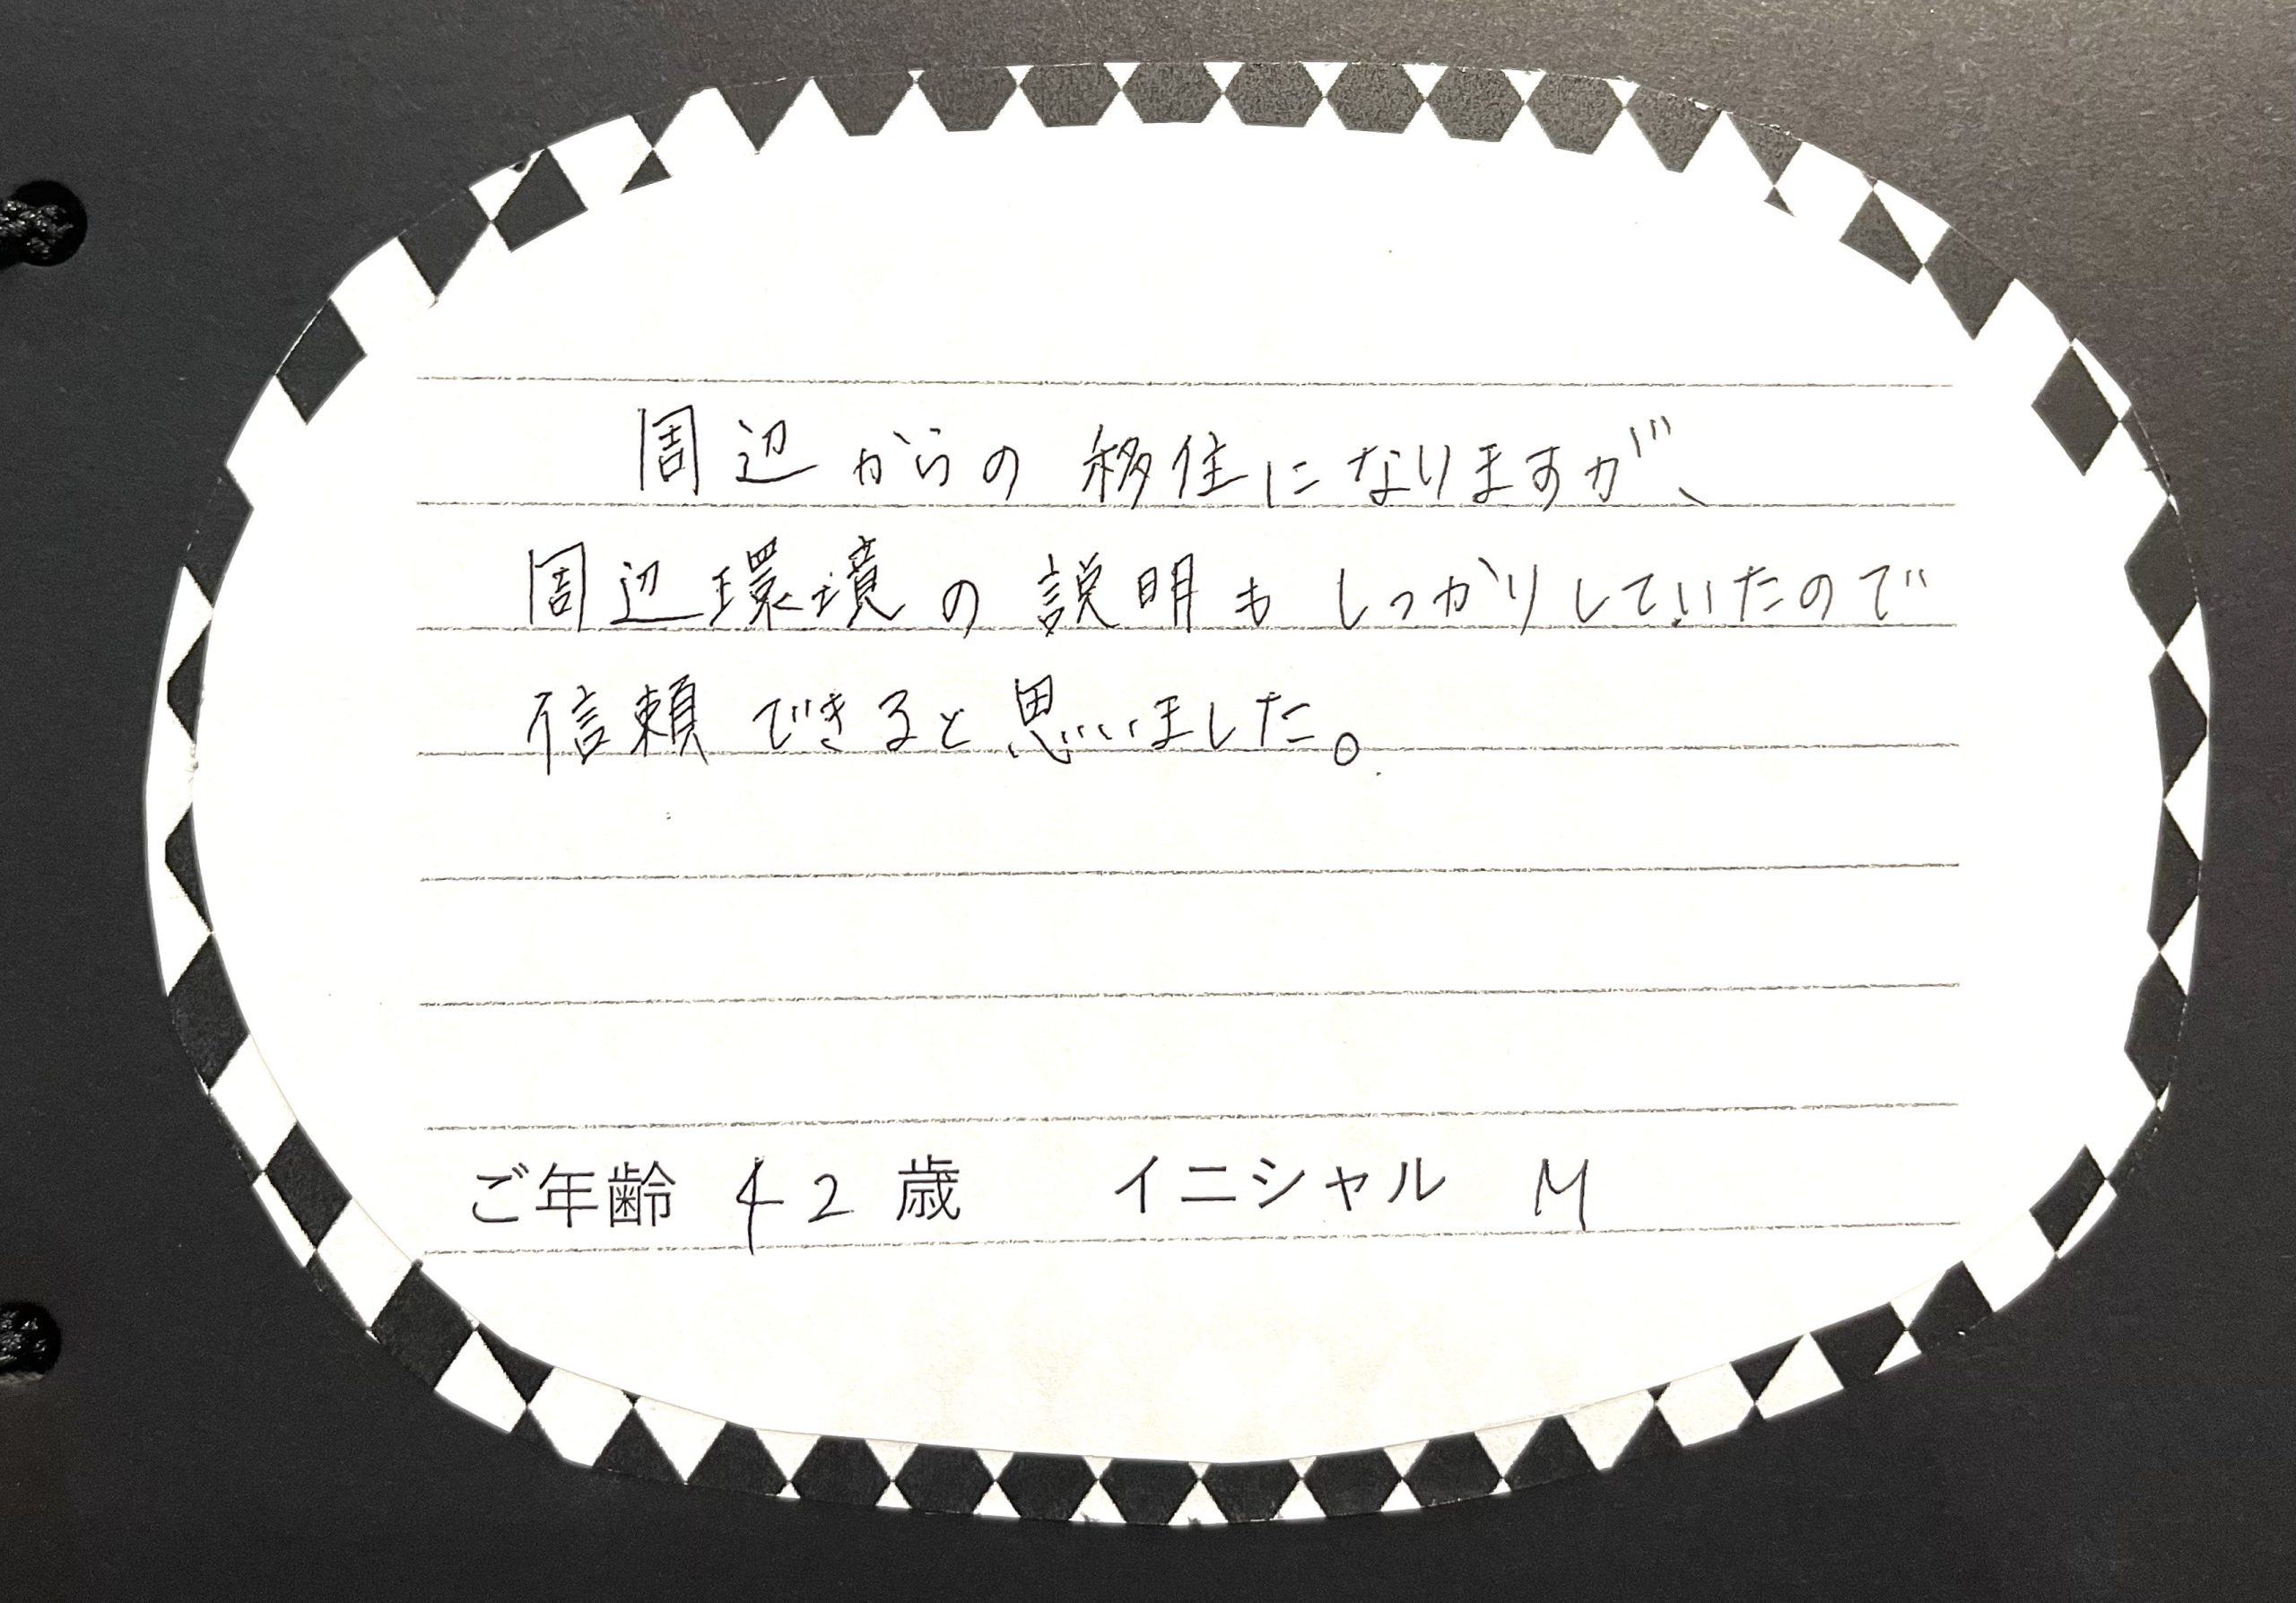 周辺からの移住になりますが、
周辺環境の説明もしっかりしていたので
信頼できると思いました。
ご年齢 42 歳 イニシャル M